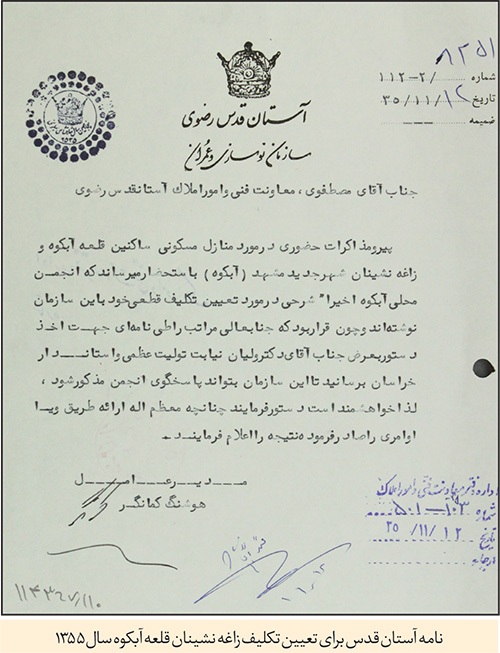 ۸۲۵۱
شماره ۱۱۲-۲/
تاریخ ۳۵/۱۱/۱۲
ضمیمه
آستان قدس رضوی
سازمان نوسازی و عمران
جناب آقای مصطفوی ، معاونت فنی و امور املاک آستانقدس رضوی
پیرو مذاکرات حضوری در مورد منازل مسکونی ساکنین قلعه آبکوه و
زاغه نشینان شهر جدید مشهد ( آبکوه ) باستحضار میرساند که انجمن
محلی آبکوه اخیرا" شرحی در مورد تعیین تکلیف قطعی خود باین سازمان
نوشته‌اند و چون قرار بود که جنابعالی مراتب را طی نامه‌ای جهت اخذ
دستور بعرض جناب آقای دکتر ولیان نیابت تولیت عظمی و استاندار
خراسان برسانید تا این سازمان بتواند پاسخگوی انجمن مذکور شود ،
لذا خواهشمند است دستور فرمایند چنانچه معظم اله ارائه طریق و یا
اوامری را صادر فرموده نتیجه را اعلام فرمایند .
مدیر عامل
هوشنگ کمانگر
اداره دفتر معاونت فنی و امور املاک
شماره ۵۰۱-۱۰۳
تاریخ ۳۵/۱۱/۱۲
نامه آستان قدس برای تعیین تکلیف زاغه نشینان قلعه آبکوه سال ۱۳۵۵